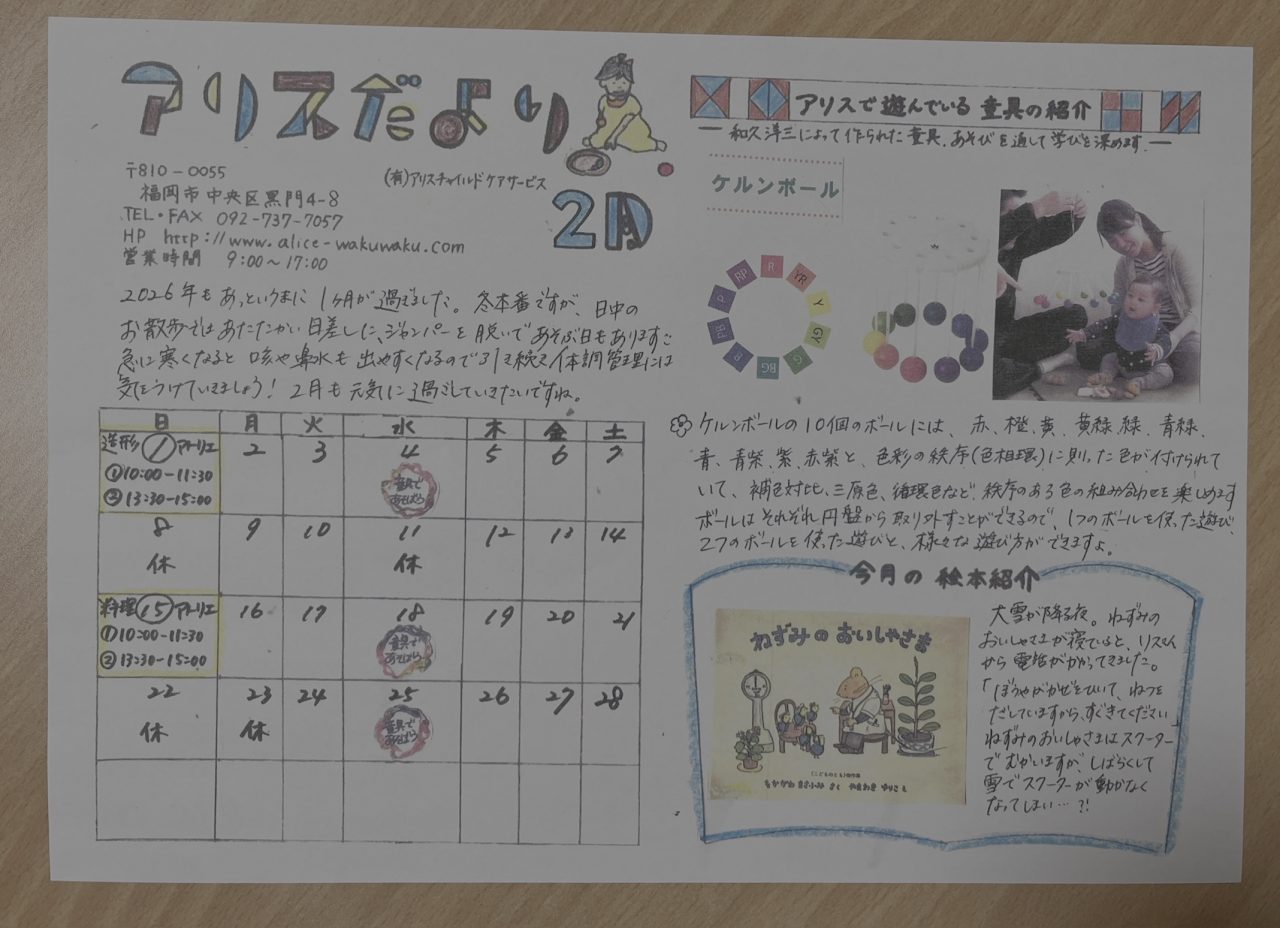 アリスだより
〒810-0055
(有)アリスチャイルドケアサービス
福岡市中央区黒門4-8
TEL・FAX 092-737-7057
HP http://www.alice-wakuwaku.com
営業時間 9:00〜17:00
2月
2026年もあっというまに1ヶ月が過ぎました。冬本番ですが、日中の
お散歩ではあたたかい日差しに、ジャンパーを脱いであそぶ日もあります。
急に寒くなると咳や鼻水も出やすくなるので引き続き体調管理には
気をつけていきましょう！2月も元気に過ごしていきたいですね。
日 月 火 水 木 金 土
造形 1 アトリエ 2 3 4 5 6 7
①10:00-11:30
②13:30-15:00
童具であそぼう
8 9 10 11 12 13 14
休 休
料理 15 アトリエ 16 17 18 19 20 21
①10:00-11:30
②13:30-15:00
童具であそぼう
22 23 24 25 26 27 28
休 休
童具であそぼう
アリスで遊んでいる童具の紹介
― 和久洋三によって作られた童具。あそびを通して学びを深めます。―
ケルンボール
R YR Y GY G BG B PB P RP
ケルンボールの10個のボールには、赤、橙、黄、黄緑、緑、青緑、
青、青紫、紫、赤紫と、色彩の秩序(色相環)に則った色が付けられて
いて、補色対比、三原色、循環色など、秩序のある色の組み合わせを楽しめます
ボールはそれぞれ円盤から取り外すことができるので、1つのボールを使った遊び、
2つのボールを使った遊びと、様々な遊び方ができますよ。
今月の絵本紹介
ねずみのおいしゃさま
〈こどものとも〉傑作集
なかがわ まさふみ さく やまわき ゆりこ え
大雪が降る夜。ねずみの
おいしゃさまが寝ていると、リスさん
から電話がかかってきました。
「ぼうやがかぜをひいて、ねつを
だしていますから、すぐきてください
ねずみのおいしゃさまはスクーター
でむかいますが、しばらくして
雪でスクーターが動かなく
なってしまい…?!